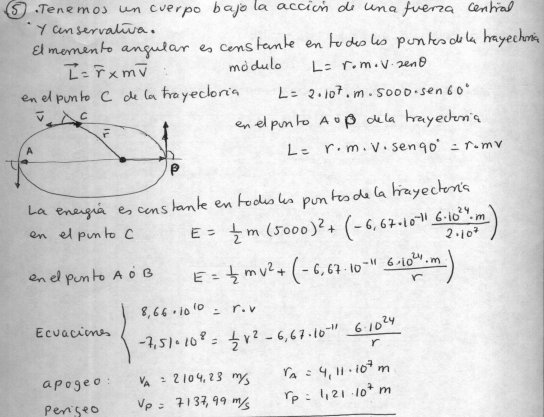 ⑤ . Tenemos un cuerpo bajo la acción de una fuerza central
y conservativa.
El momento angular es constante en todos los puntos de la trayectoria
L⃗ = r̄ x m v̄ módulo L = r·m·v·senθ
en el punto C de la trayectoria L = 2·10⁷·m·5000·sen60°
v̄ C
r̄
en el punto A o P de la trayectoria
A
P
L = r·m·v·sen90° = r·mv
La energía es constante en todos los puntos de la trayectoria
en el punto C E = 1/2 m (5000)² + (-6,67·10⁻¹¹ 6·10²⁴·m / 2·10⁷)
en el punto A ó B E = 1/2 mv² + (-6,67·10⁻¹¹ 6·10²⁴·m / r)
8,66·10¹⁰ = r·v
Ecuaciones {
-7,51·10⁸ = 1/2 v² - 6,67·10⁻¹¹ 6·10²⁴ / r
apogeo: v_A = 2104,23 m/s r_A = 4,11·10⁷ m
perigeo v_P = 7137,99 m/s r_P = 1,21·10⁷ m